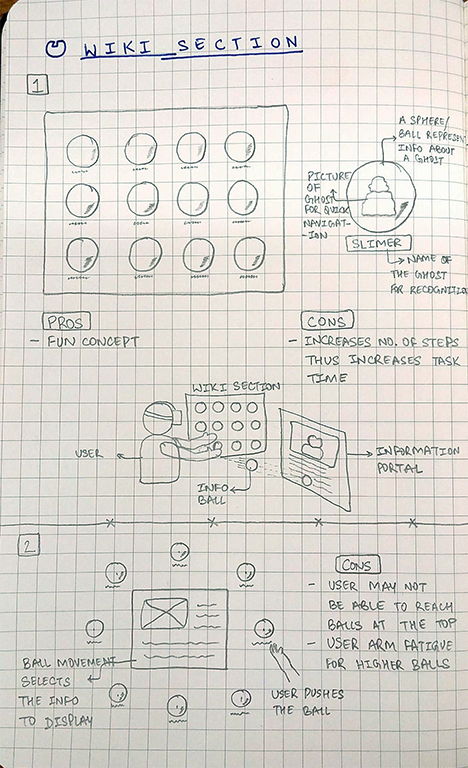 WIKI SECTION
1
A SPHERE/
BALL REPRESENT
INFO ABOUT
A GHOST
PICTURE
OF
GHOST
FOR QUICK
NAVIGAT-
-ION
SLIMER
NAME OF
THE GHOST
FOR RECOGNITION
PROS
- FUN CONCEPT
CONS
- INCREASES NO. OF STEPS
THUS INCREASES TASK
TIME
WIKI SECTION
USER
INFO
BALL
INFORMATION
PORTAL
2
CONS
- USER MAY NOT
BE ABLE TO REACH
BALLS AT THE TOP
- USER ARM FATIGUE
FOR HIGHER BALLS
BALL MOVEMENT
SELECTS
THE INFO
TO DISPLAY
USER PUSHES
THE BALL